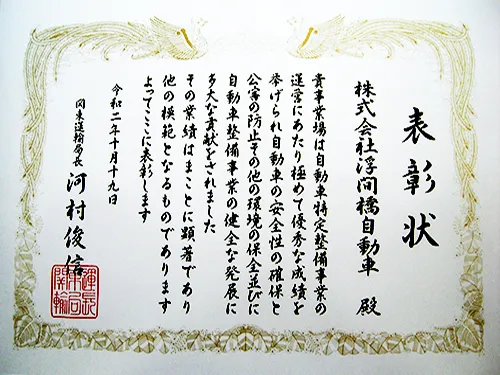 表彰状
株式会社浮间橋自動車 殿
貴事業場は自動車特定整備事業の
運営にあたり極めて優秀な成績を
挙げられ自動車の安全性の確保と
公害の防止その他の環境の保全並びに
自動車整備事業の健全な発展に
多大な貢献をされました
その業績はまことに顕著であり
他の模範となるものであります
よってここに表彰します
令和二年十月十九日
関東運輸局長 河村俊信